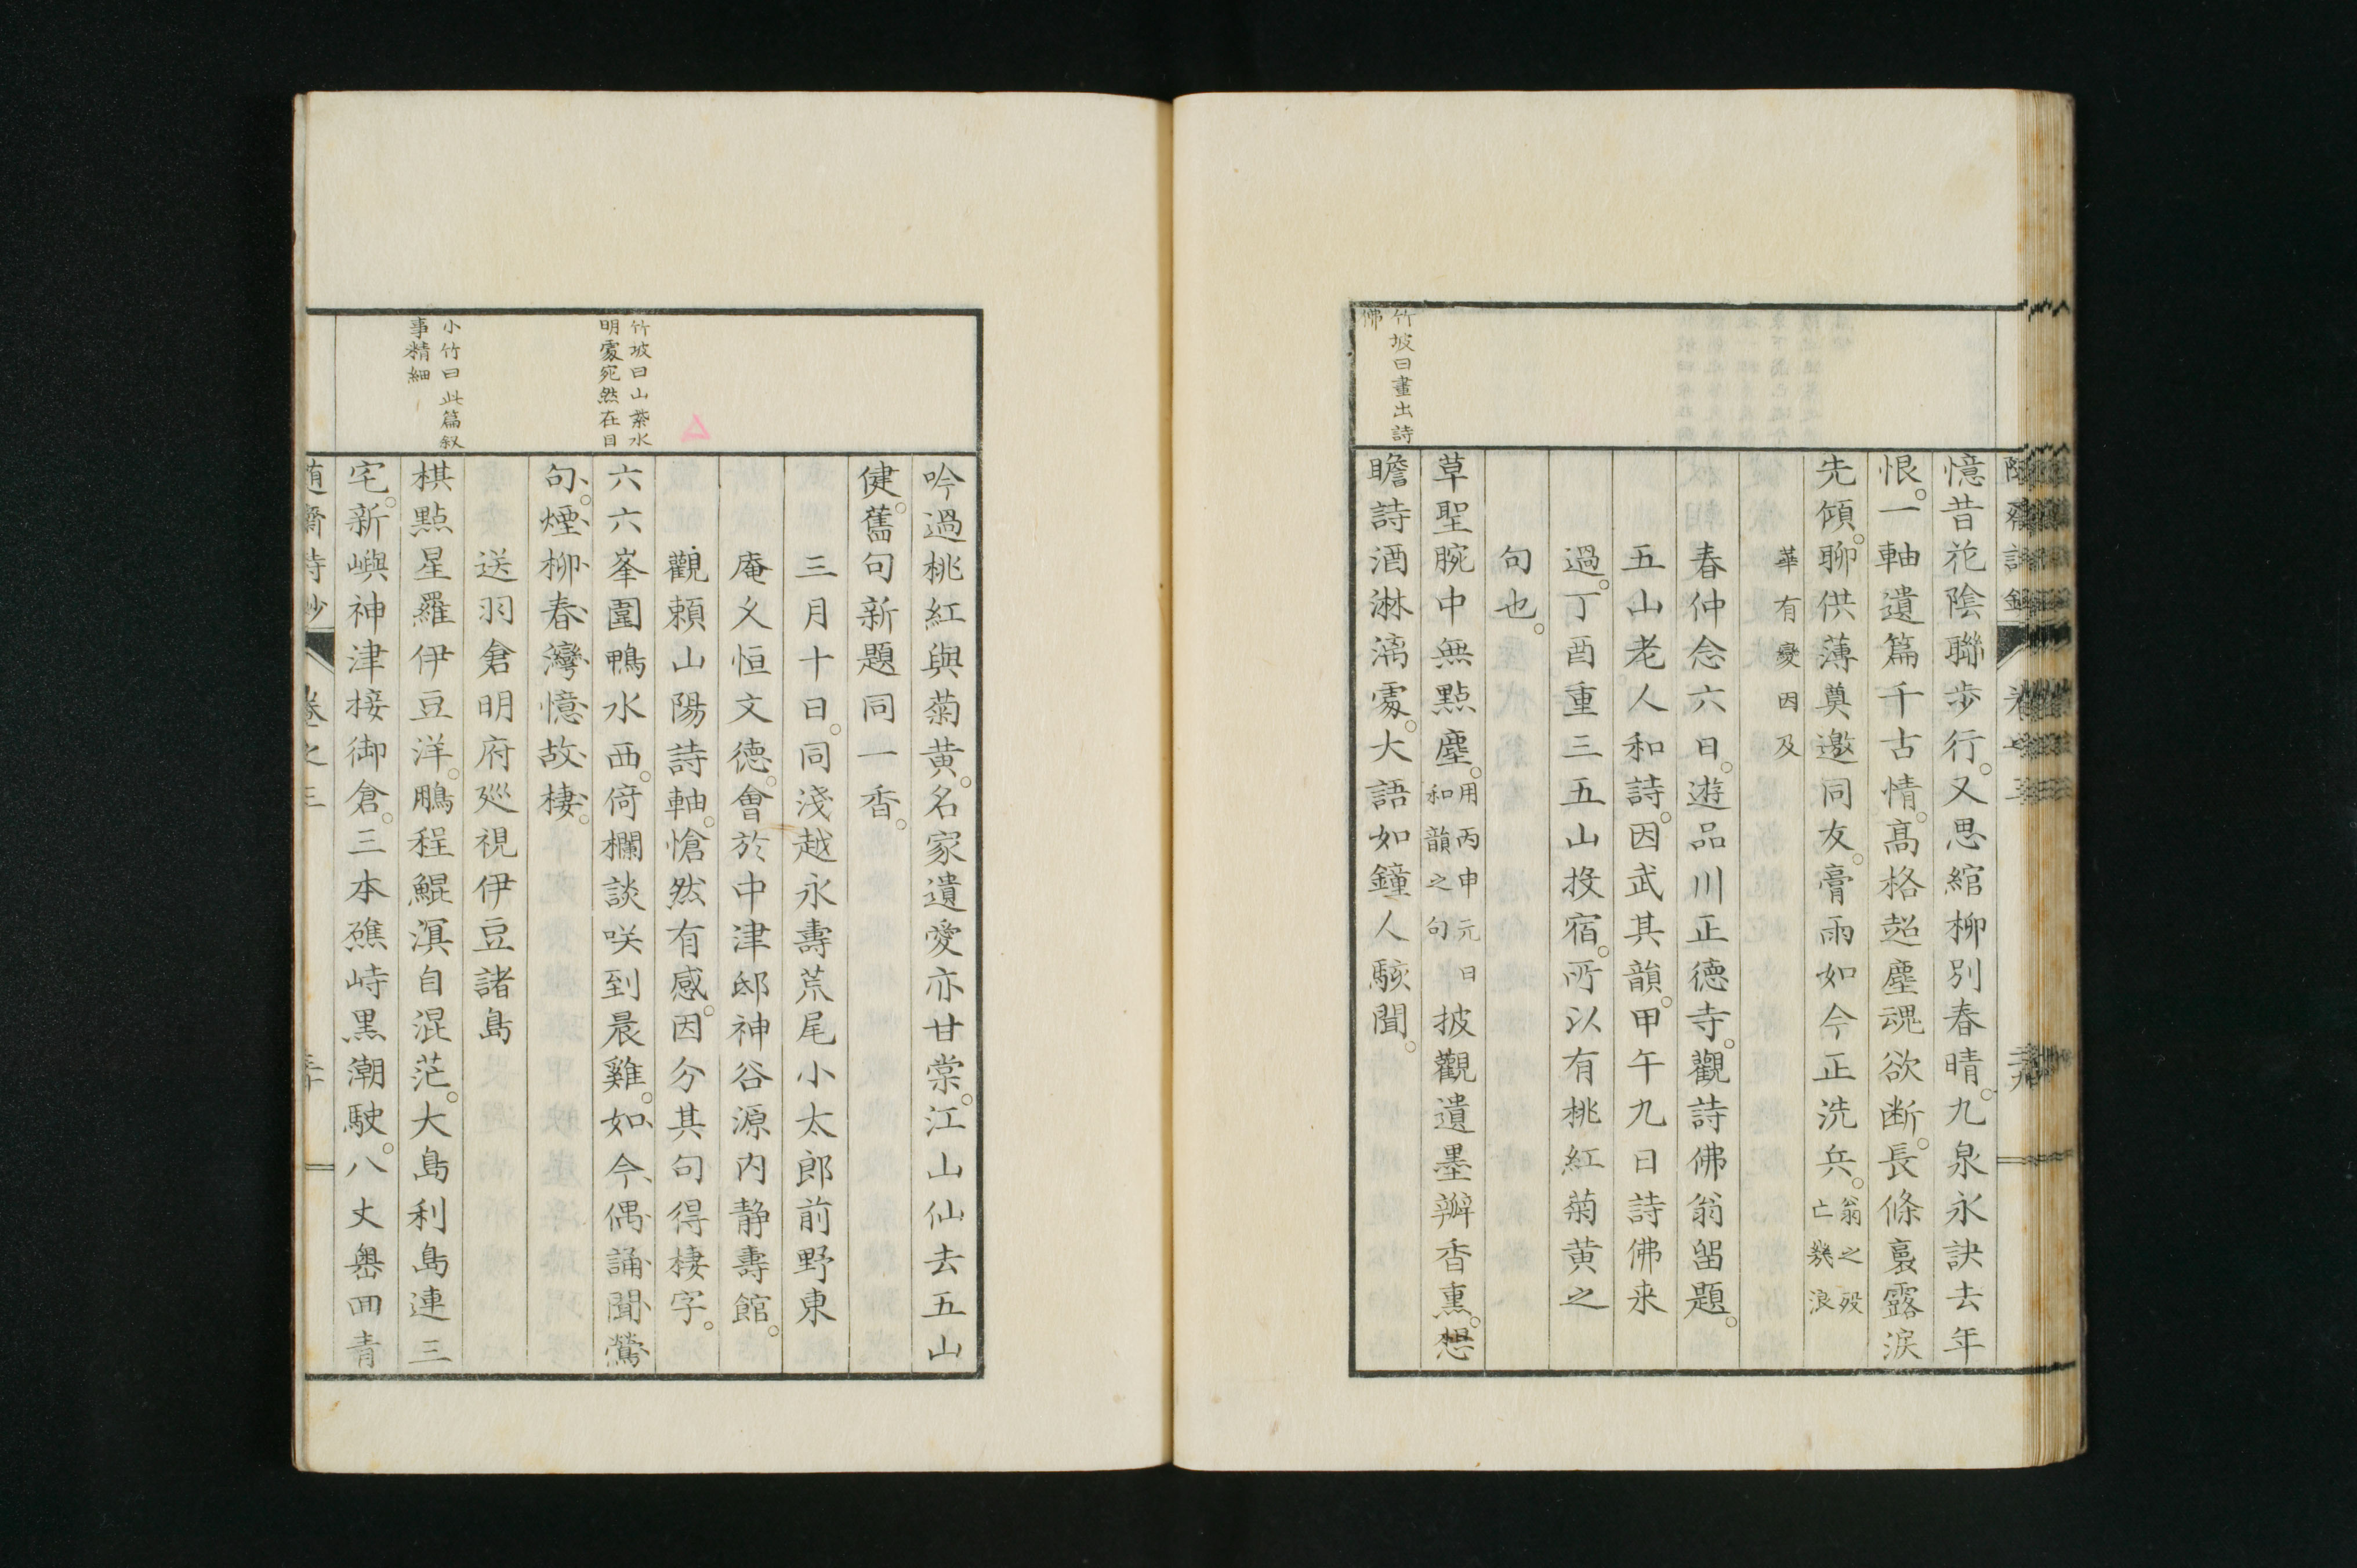 憶昔花陰聯歩行。又思綰柳別春晴。九泉永訣去年
恨。一軸遺篇千古情。高格超塵魂欲断。長條裛露淚
先傾。聊供薄奠邀同友。膏雨如今正洗兵。翁之歿
亡幾浪
華有變因及
春仲念六日。遊品川正德寺。觀詩佛翁留題。
五山老人和詩。因武其韻。甲午九日詩佛来
過。丁酉重三五山投宿。所以有桃紅菊黄之
句也。
草聖腕中無點塵。用丙申元日
和韻之句
披觀遺墨辦香熏。想
竹坡曰畫出詩
佛
瞻詩酒淋漓處。大語如鐘人駭聞。
吟過桃紅與菊黄。名家遺愛亦甘棠。江山仙去五山
健。舊句新題同一香。
三月十日。同淺越永壽荒尾小太郎前野東
庵乂恒文德。會於中津邸神谷源内靜壽館。
觀賴山陽詩軸。愴然有感。因分其句得棲字。
竹坡曰山紫水
明處宛然在目
六六峯圍鴨水西。倚欄談咲到晨雞。如今偶誦聞鶯
句。煙柳春灣憶故棲。
送羽倉明府巡視伊豆諸島
小竹曰此篇叙
事精細
棋點星羅伊豆洋。鵬程鯤溟自混茫。大島利島連三
宅。新嶼神津接御倉。三本礁峙黒潮駛。八丈嶴回青
随齋詩鈔 卷之三 三十